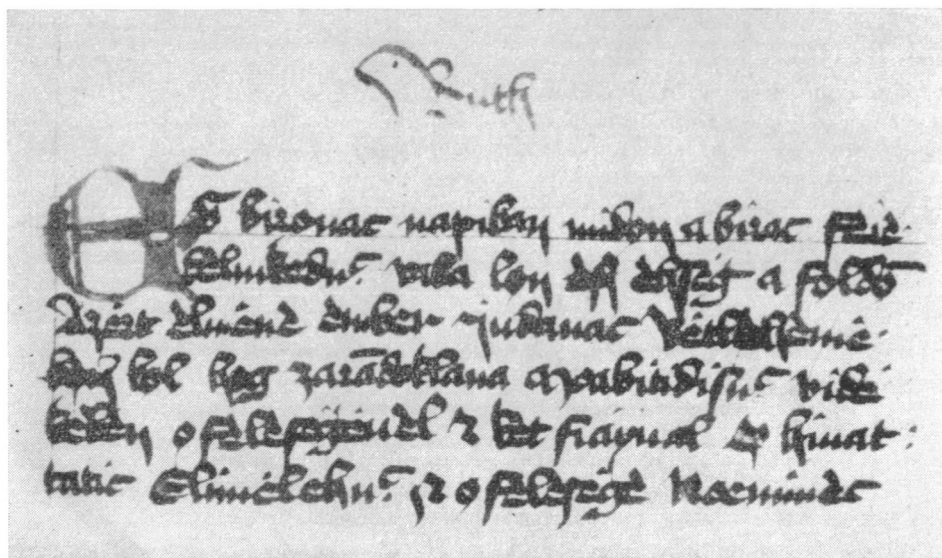 Ruth
Es bironac napiban midon a birac feie
delmkednc. vala lon ehseg a foldō
Azert elmene ember Judanac Bethleheme
bol hog zarādoklana moabitidisnc vide
keben o felesegeuel z ket fiayual Es hiuat
tatic Elimelehnc z o felesege Noeminec